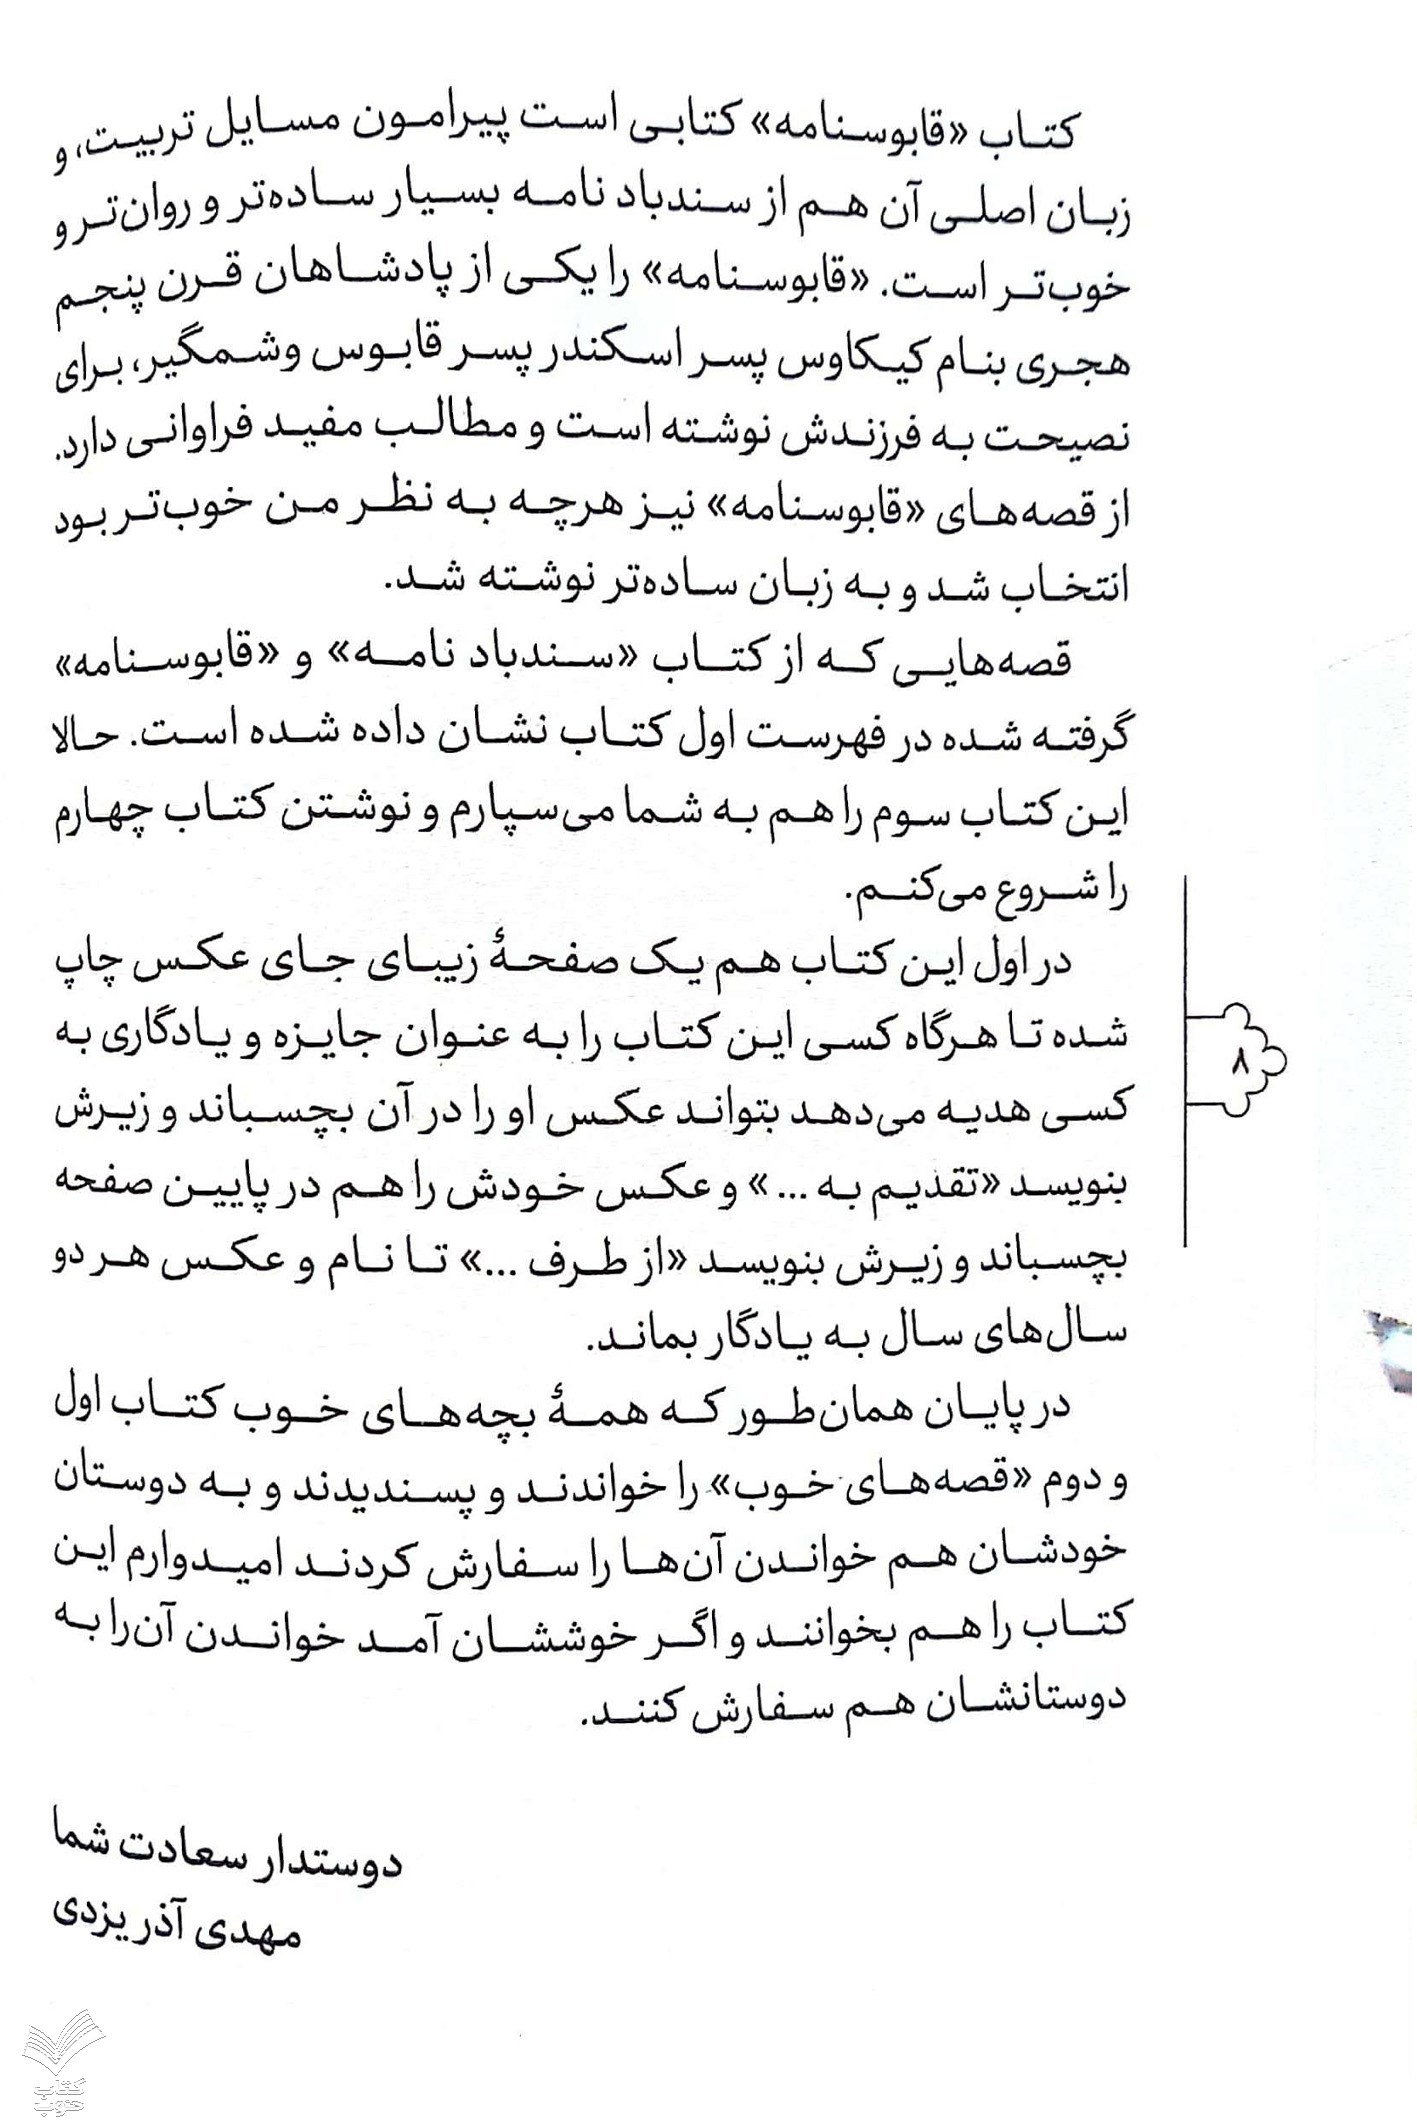 کتاب «قابوسنامه» کتابی است پیرامون مسایل تربیت، و
زبان اصلی آن هم از سندباد نامه بسیار ساده‌تر و روان‌تر و
خوب‌تر است. «قابوسنامه» را یکی از پادشاهان قرن پنجم
هجری بنام کیکاوس پسر اسکندر پسر قابوس وشمگیر، برای
نصیحت به فرزندش نوشته است و مطالب مفید فراوانی دارد.
از قصه‌های «قابوسنامه» نیز هرچه به نظر من خوب‌تر بود
انتخاب شد و به زبان ساده‌تر نوشته شد.
قصه‌هایی که از کتاب «سندباد نامه» و «قابوسنامه»
گرفته شده در فهرست اول کتاب نشان داده شده است. حالا
این کتاب سوم را هم به شما می‌سپارم و نوشتن کتاب چهارم
را شروع می‌کنم.
در اول این کتاب هم یک صفحهٔ زیبای جای عکس چاپ
شده تا هرگاه کسی این کتاب را به عنوان جایزه و یادگاری به
کسی هدیه می‌دهد بتواند عکس او را در آن بچسباند و زیرش
بنویسد «تقدیم به ...» و عکس خودش را هم در پایین صفحه
بچسباند و زیرش بنویسد «از طرف ...» تا نام و عکس هر دو
سال‌های سال به یادگار بماند.
در پایان همان‌طور که همهٔ بچه‌های خوب کتاب اول
و دوم «قصه‌های خوب» را خواندند و پسندیدند و به دوستان
خودشان هم خواندن آن‌ها را سفارش کردند امیدوارم این
کتاب را هم بخوانند و اگر خوششان آمد خواندن آن‌را به
دوستانشان هم سفارش کنند.
دوستدار سعادت شما
مهدی آذر یزدی
۸
کتاب
خوب